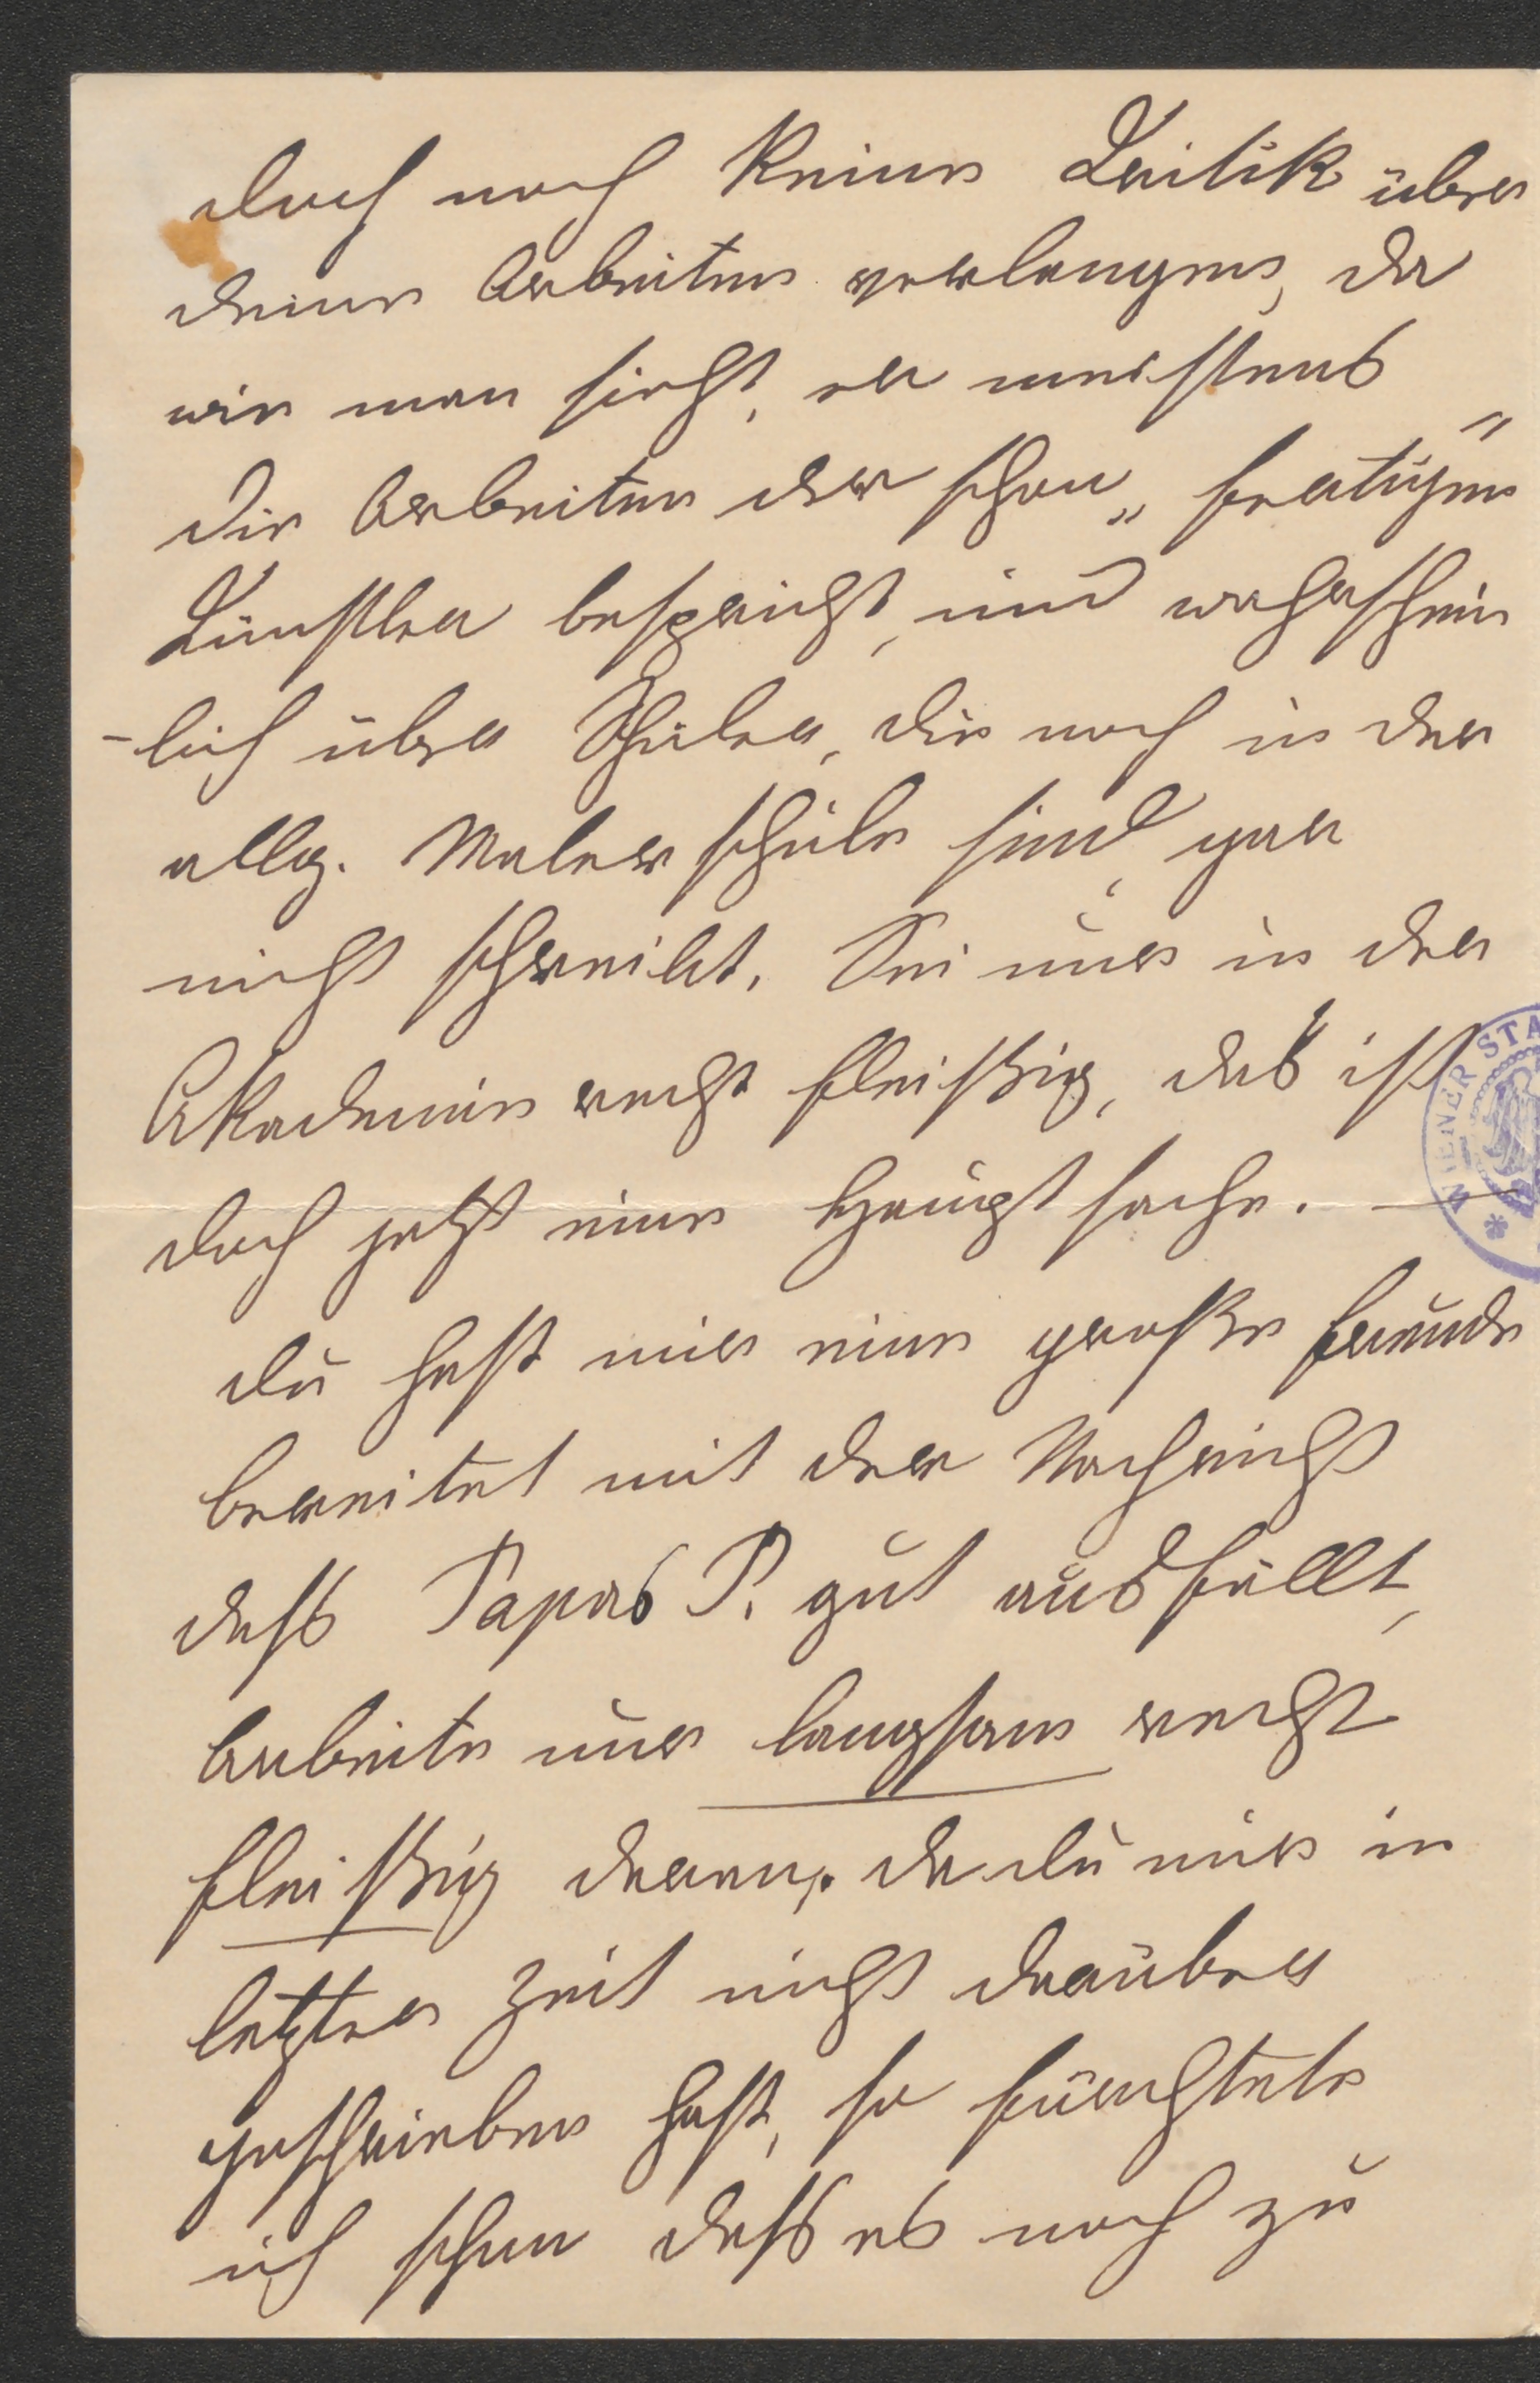 doch noch keine Kritik über
deine Arbeiten verlangen, da
wie man sieht, er meistens
die Arbeiten der schon „fertigen"
Künstler bespricht, und wahrschein
-lich über Schüler, die noch in der
allg. Malerschule sind, gar
nicht schreibt. Sei nur in der
Akademie recht fleißig, das ist
doch jetzt eine Hauptsache. —
Du hast mir eine große Freude
bereitet mit der Nachricht
dass Papas P. gut ausfällt,
Arbeite nur langsam recht
fleißig daran, da du mir in
letzter Zeit nichts darüber
geschrieben hast, so fürchtete
ich schon dass es noch zu
WIENER STA